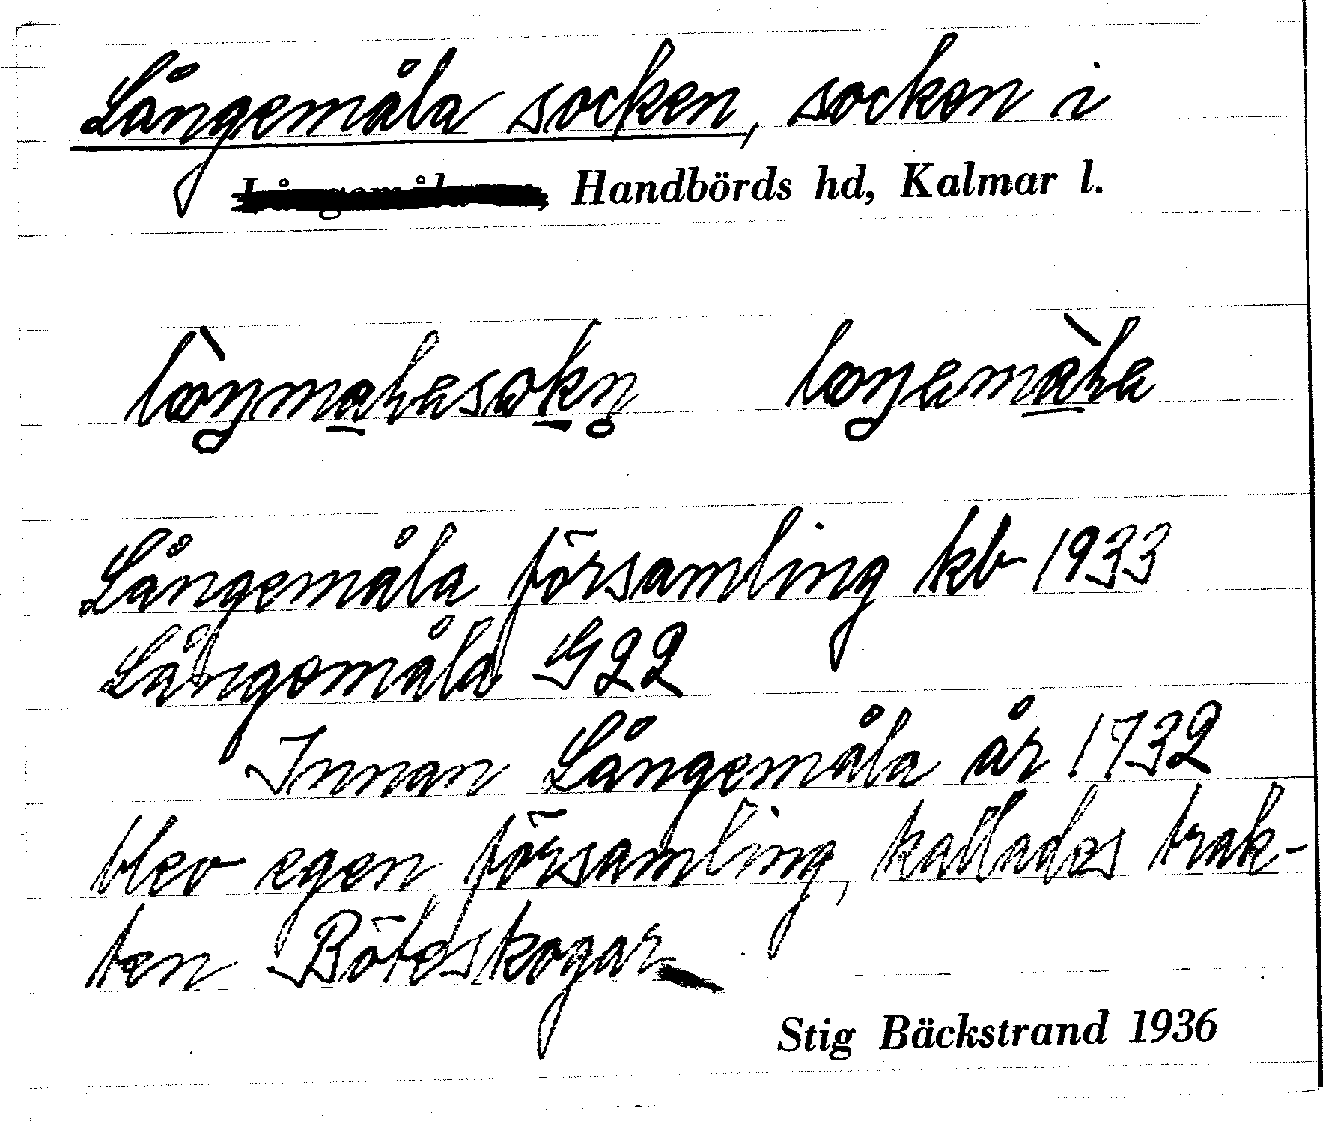 Långemåla socken, socken i
Handbörds hd, Kalmar l.
Långemåla församling kb 1933
Långemåla G22
Innan Långemåla år 1732
blev egen församling, kallades trak-
ten Böteskogar
Stig Bäckstrand 1936